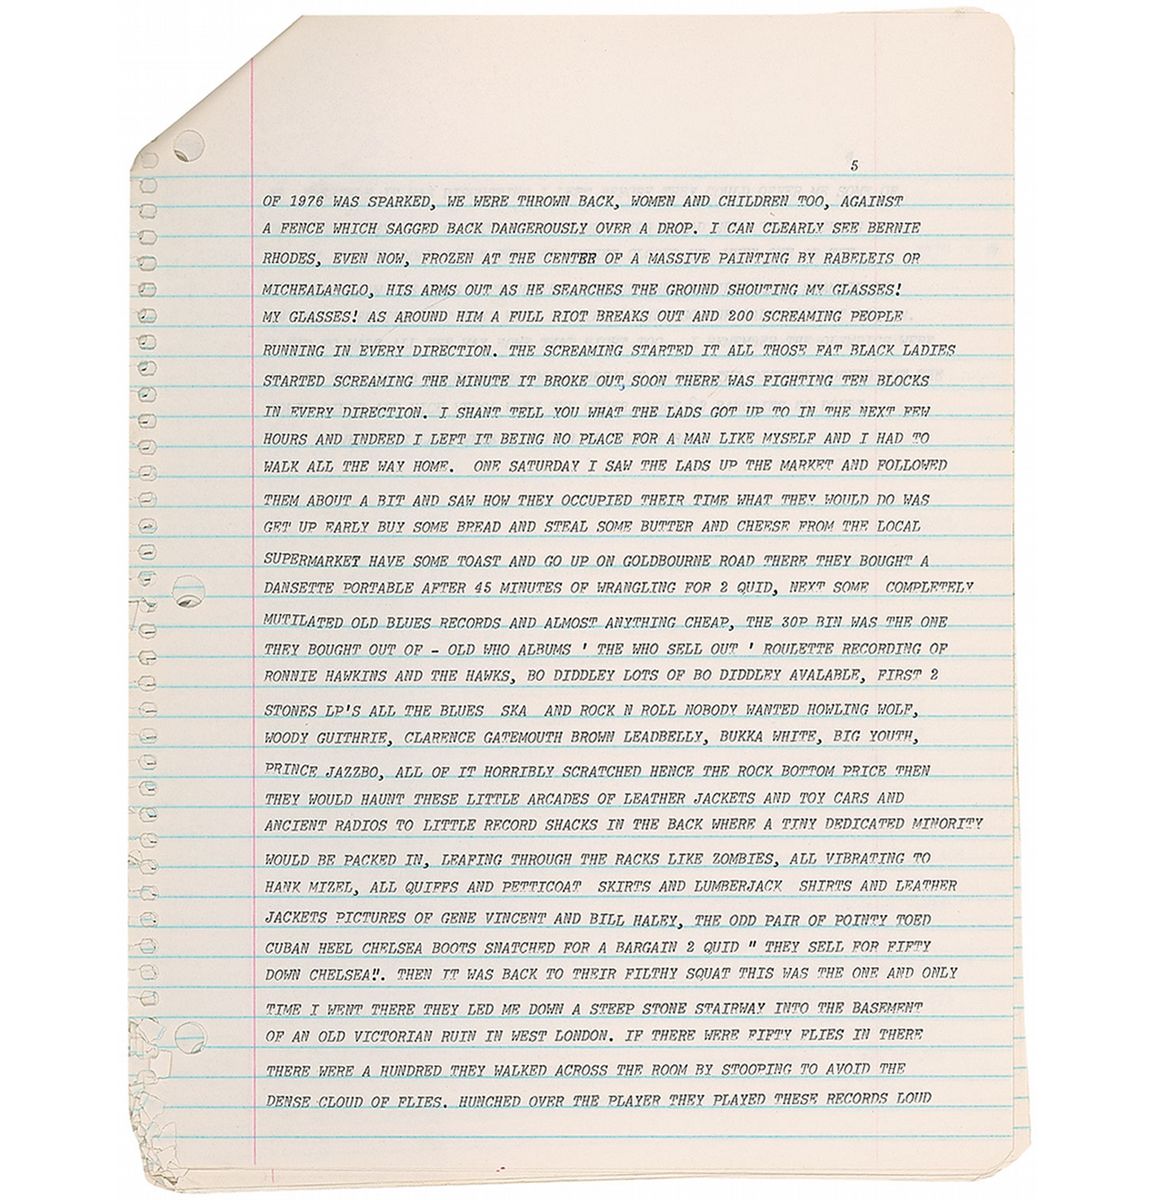 5
OF 1976 WAS SPARKED, WE WERE THROWN BACK, WOMEN AND CHILDREN TOO, AGAINST
A FENCE WHICH SAGGED BACK DANGEROUSLY OVER A DROP. I CAN CLEARLY SEE BERNIE
RHODES, EVEN NOW, FROZEN AT THE CENTER OF A MASSIVE PAINTING BY RABELEIS OR
MICHEALANGLO, HIS ARMS OUT AS HE SEARCHES THE GROUND SHOUTING MY GLASSES!
MY GLASSES! AS AROUND HIM A FULL RIOT BREAKS OUT AND 200 SCREAMING PEOPLE
RUNNING IN EVERY DIRECTION. THE SCREAMING STARTED IT ALL THOSE FAT BLACK LADIES
STARTED SCREAMING THE MINUTE IT BROKE OUT, SOON THERE WAS FIGHTING TEN BLOCKS
IN EVERY DIRECTION. I SHANT TELL YOU WHAT THE LADS GOT UP TO IN THE NEXT FEW
HOURS AND INDEED I LEFT IT BEING NO PLACE FOR A MAN LIKE MYSELF AND I HAD TO
WALK ALL THE WAY HOME.  ONE SATURDAY I SAW THE LADS UP THE MARKET AND FOLLOWED
THEM ABOUT A BIT AND SAW HOW THEY OCCUPIED THEIR TIME WHAT THEY WOULD DO WAS
GET UP EARLY BUY SOME BREAD AND STEAL SOME BUTTER AND CHEESE FROM THE LOCAL
SUPERMARKET HAVE SOME TOAST AND GO UP ON GOLDBOURNE ROAD THERE THEY BOUGHT A
DANSETTE PORTABLE AFTER 45 MINUTES OF WRANGLING FOR 2 QUID, NEXT SOME  COMPLETELY
MUTILATED OLD BLUES RECORDS AND ALMOST ANYTHING CHEAP, THE 30P BIN WAS THE ONE
THEY BOUGHT OUT OF - OLD WHO ALBUMS ' THE WHO SELL OUT ' ROULETTE RECORDING OF
RONNIE HAWKINS AND THE HAWKS, BO DIDDLEY LOTS OF BO DIDDLEY AVALABLE, FIRST 2
STONES LP'S ALL THE BLUES  SKA  AND ROCK N ROLL NOBODY WANTED HOWLING WOLF,
WOODY GUITHRIE, CLARENCE GATEMOUTH BROWN LEADBELLY, BUKKA WHITE, BIG YOUTH,
PRINCE JAZZBO, ALL OF IT HORRIBLY SCRATCHED HENCE THE ROCK BOTTOM PRICE THEN
THEY WOULD HAUNT THESE LITTLE ARCADES OF LEATHER JACKETS AND TOY CARS AND
ANCIENT RADIOS TO LITTLE RECORD SHACKS IN THE BACK WHERE A TINY DEDICATED MINORITY
WOULD BE PACKED IN, LEAFING THROUGH THE RACKS LIKE ZOMBIES, ALL VIBRATING TO
HANK MIZEL, ALL QUIFFS AND PETTICOAT  SKIRTS AND LUMBERJACK  SHIRTS AND LEATHER
JACKETS PICTURES OF GENE VINCENT AND BILL HALEY, THE ODD PAIR OF POINTY TOED
CUBAN HEEL CHELSEA BOOTS SNATCHED FOR A BARGAIN 2 QUID " THEY SELL FOR FIFTY
DOWN CHELSEA!". THEN IT WAS BACK TO THEIR FILTHY SQUAT THIS WAS THE ONE AND ONLY
TIME I WENT THERE THEY LED ME DOWN A STEEP STONE STAIRWAY INTO THE BASEMENT
OF AN OLD VICTORIAN RUIN IN WEST LONDON. IF THERE WERE FIFTY FLIES IN THERE
THERE WERE A HUNDRED THEY WALKED ACROSS THE ROOM BY STOOPING TO AVOID THE
DENSE CLOUD OF FLIES. HUNCHED OVER THE PLAYER THEY PLAYED THESE RECORDS LOUD